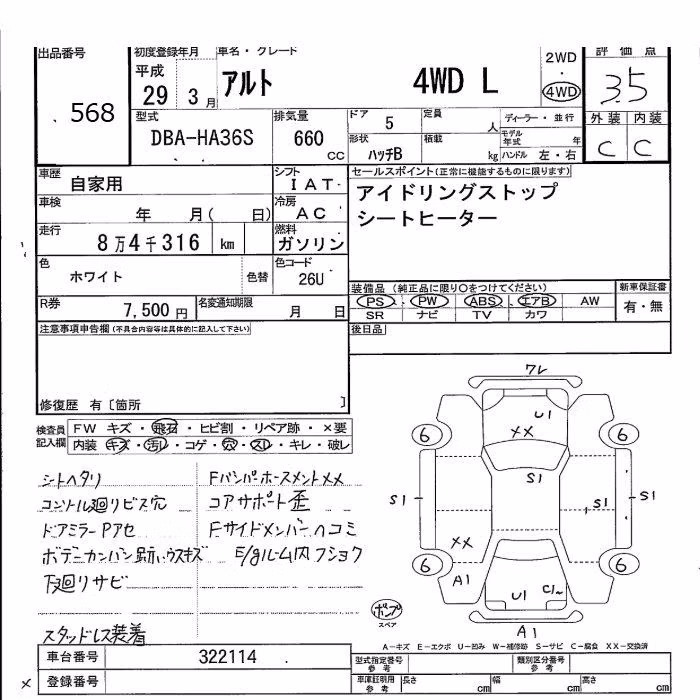 出品番号
568
初度登録年月
平成
29 3 月
車名・グレード
アルト 4WD L
2WD
・
4WD
評価点
3.5
外装 内装
C C
型式
DBA-HA36S
排気量
660
cc
ドア
5
定員
人
形状
ハッチB
積載
kg
ディーラー・並行
モデル年式 年
ハンドル 左・右
車歴
自家用
シフト
IAT
車検
年 月( 日)
冷房
AC
走行
8万4千316 km
燃料
ガソリン
色
ホワイト
色替
色コード
26U
R券
7,500円
名変通知期限
月 日
セールスポイント(正常に機能するものに限ります)
アイドリングストップ
シートヒーター
装備品 (純正品に限り○をつけてください)
PS PW ABS エアB AW
SR ナビ TV カワ
新車保証書
有・無
後日品
注意事項申告欄(不具合内容等は具体的に記入して下さい)
修復歴 有〔箇所 〕
検査員
記入欄
FW キズ・飛石・ヒビ割・リペア跡・×要
内装 キズ・汚レ・コゲ・穴・スレ・キレ・破レ
シートヘタリ
コンソール廻リビス穴
ドアミラーPアセ
下廻リサビ
スタッドレス装着
コアサポート歪
Fサイドメンバーヘコミ
ワレ
U1
XX
6 6
S1
S1 S1 S1
XX
6 6
A1
U1 C1
A1
スペア
A-キズ E-エクボ U-凹み W-補修跡 S-サビ C-腐食 XX-交換済
車台番号
322114
登録番号
型式指定番号
参考
類別区分番号
参考
車庫証明用
参考
長さ cm 幅 cm 高さ cm